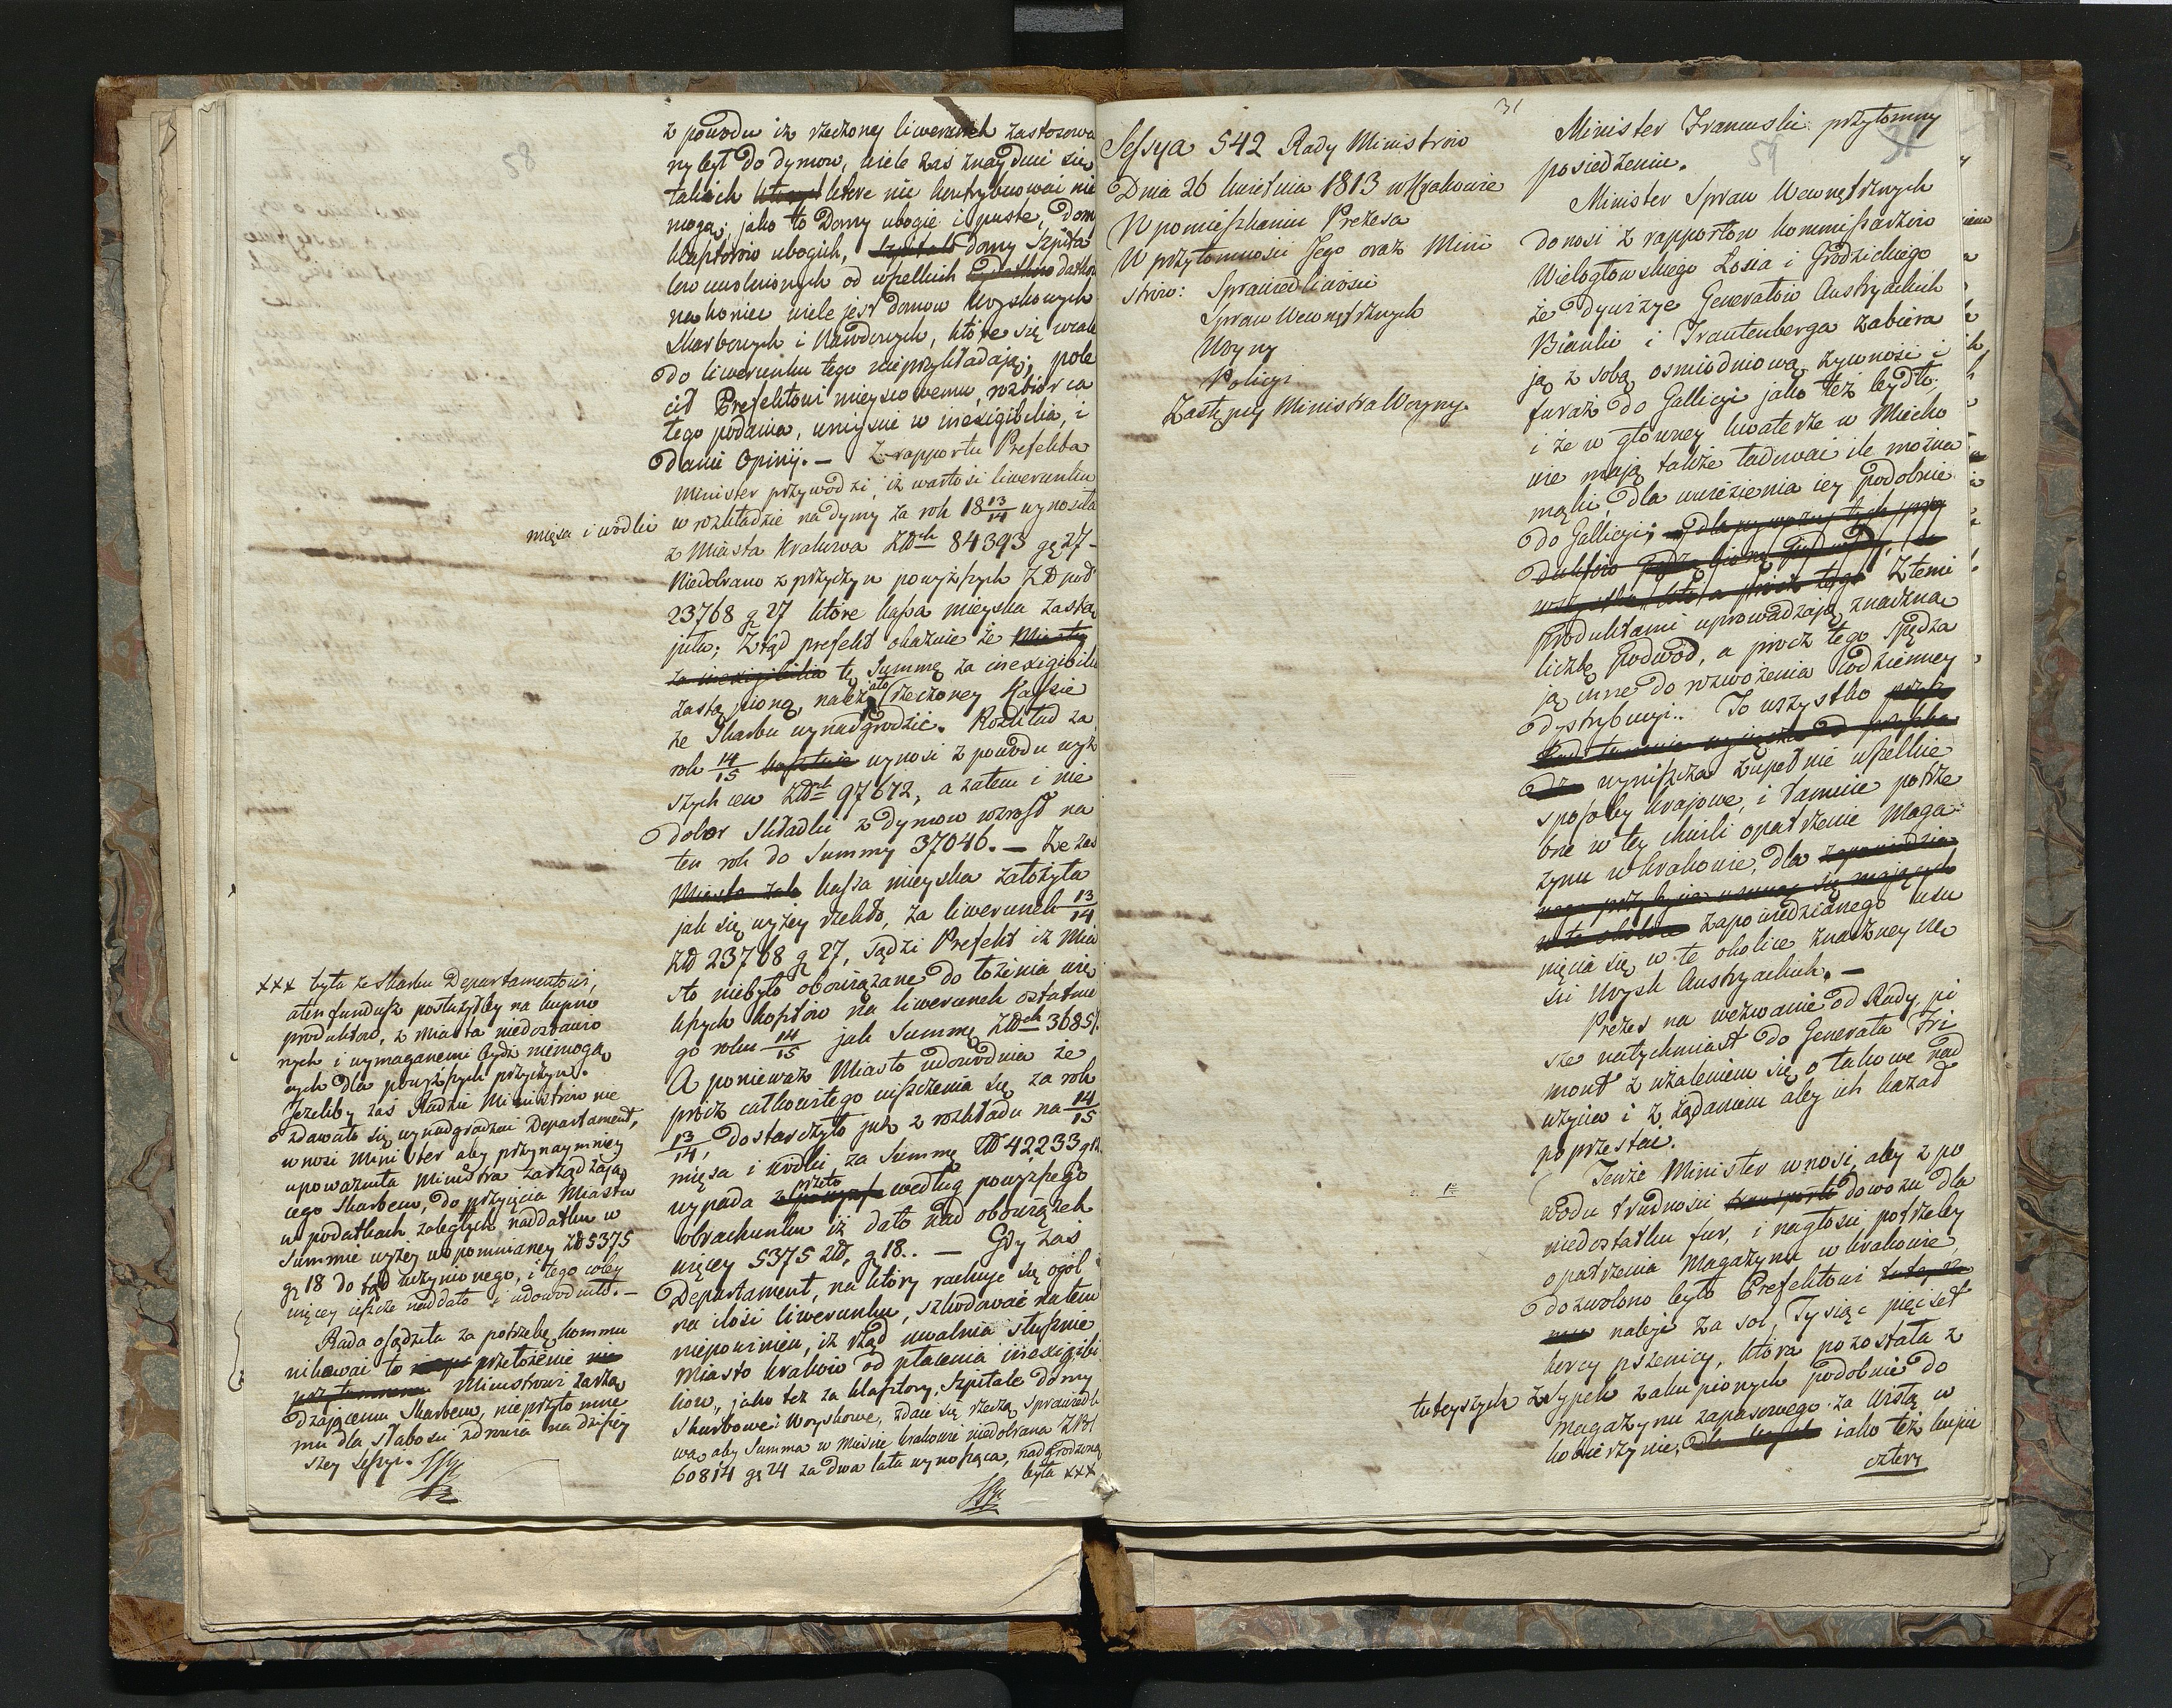 58
z powodu iż rzeczony liwerunek zastosowa
ny był do dymow, wiele zaś znayduie się
takich które nie kontrybuować nie
mogą; jako to Domy ubogie i puste, dom
klasztorow ubogich, domy Szpita
low uwolnionych od wszelkich datkow
nakoniec wiele jest domow Woyskowych
Skarbowych i Narodowych, które się wcale
do liwerunku tego nieprzykładają; pole
cił Prefektowi mieyscowemu, rozbiór ca
tego podania, umysnie w inexigibilia, i
danie Opinij. — Z rapportu Prefekta
Minister przywodzi, iż wartości liwerunku
mięsa i wodki w rozkładzie na dymy za rok 18 13/14 wynosiła
z Miasta Krakowa ZPch 84393 gr 27 –
Niedobrano z przyczyn powyższych ZP pod
23768 g 27 które kassa mieyska zastą
piła; Ztąd prefekt okazuie że
tę Summę za inexigibilia
zastąpioną należało rzeczoney Kassie
ze Skarbu wynadgrodzić. Rozkład za
rok 14/15 wynosi z powodu wyż
szych cen ZPch 97672, a zatem i nie
dobor składki z dymow wzrosł na
ten rok do Summy 37046. — Ze zas
kassa mieyska założyła
jak się wyżey rzekło, za liwerunek 13/14
ZP 23768 g 27, sądzi Prefekt iż Mia
sto niebyło obowiązane do łożenia wię
kszych kosztow na liwerunek ostatnie
go roku 14/15 jak Summę ZPch 36857.
A ponieważ Miasto udowodnia że
prócz całkowitego uiszczenia się za rok
13/14, dostarczyło już z rozkładu na 14/15
mięsa i wodki za Summę ZP 42233 g
wypada przeto według powyższego
obrachunku iż dało nad obowiązek
więcey 5375 ZP, g 18.. — Gdy zaś
Departament, na który rachuje się ogół
na ilości liwerunku, szkodować na tem
niepowinien, iż rząd uwalnia słusznie
Miasto Krakow od płacenia inexigibi
liow, jako też za klasztory, Szpitale domy
Skarbowe i Woyskowe, zdaie się rzeczą sprawiedli
wą, aby Summa w Mieście Krakowie niedobrana ZP
60814 g 24 za dwa lata wynosząca, nadgrodzona
była xxx
xxx była ze Skarbu Departamentowi,
a ten fundusz posłużyłby na kupno
produktow, z Miasta niedostawio
nych i wymaganemi bydź niemogą
cych dla powyższych przyczyn.
Jezeliby zaś Radzie Ministrow nie
zdawało się wynadgradzać Departament,
wnosi Minister aby przynaymniey
upoważniła Ministra zarządzają
cego Skarbem, do przyjęcia Miastu
w podatkach zaległych naddatku w
Summie wyżey wspomnianey ZP 5375
g 18 do tąd uczynionego, i tego coby
więcey ieszcze naddało i udowodniło. —
Rada osądziła za potrzebę kommu
nikować to przełożenie
Ministrowi zarzą
dzającemu Skarbem, nieprzytomne
mu dla słabości zdrowia na dzisiey
szey sessyi.
31
Sessya 542 Rady Ministrow
Dnia 26 kwietnia 1813 w Krakowie
W pomieszkaniu Prezesa
W przytomności Jego oraz Mini
strow: Sprawiedliwości
Spraw Wewnętrznych
Woyny
Policyi
Zastępcy Ministra Woyny.
59
Minister Francuski przytomny
posiedzeniu.
Minister Spraw Wewnętrznych
donosi z rapportow kommissarzow
Wielogłowskiego Łosia i Grodzickiego
że dywizye Generałow Austryackich
Bianki i Trautenberga zabiera
ją z sobą osmiodniową żywność i
furaż do Gallicyi jako też bydło;
i że w główney kwaterze w Miecho
wie mają także ładować ile można
mąki, dla uwiezienia iey podobnie
do Gallicyi;
Z temi
produktami uprowadzają znaczną
liczbę podwod, a procz tego spędza
ją inne do rozwożenia codzienney
dystrybucyi.. To wszystko
wyniszcza zupełnie wszelkie
sposoby krajowe, i tamuie potrze
bne w tey chwili opatrzenie Maga
zynu w Krakowie, dla
zapowiedzianego usu
nięcia się w te okolice znaczney czę
ści Woysk Austryackich. —
Prezes na wezwanie od Rady, pi
sze natychmiast do Generała Fri
mont z użaleniem się o takowe nad
użycia i z żądaniem aby ich kazał
poprzestać.
Tenże Minister wnosi, aby z po
wodu trudności dowozu dla
niedostatku fur, i nagłości potrzeby
opatrzenia Magazynu w Krakowie,
dozwolono było Prefektowi
nalegi za sol, Tysiąc pięćset
korcy pszenicy, która pozostała z
tuteyszych zsypek zakupionych podobnie do
magazynu zapasowego za Wisłą w
kobierzynie, iako też kupić
cztery